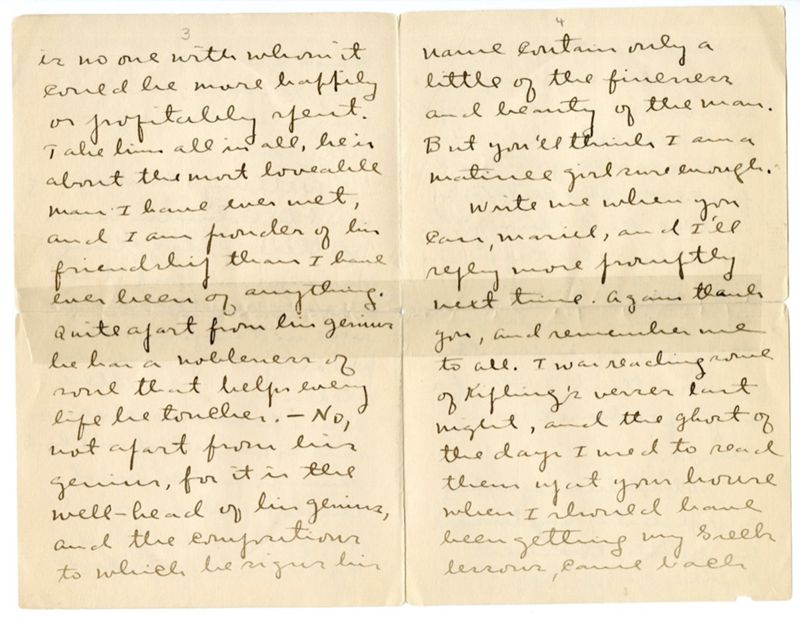 3
is no one with whom it
could be more happily
or profitably spent.
Take him all in all, he is
about the most loveable
man I have ever met,
and I am prouder of his
friendship than I have
ever been of anything.
Quite apart from his genius
he has a nobleness of
soul that helps every
life he touches. — No,
not apart from his
genius, for it is the
well-head of his genius,
and the compositions
to which he signs his
4
name contain only a
little of the fineness
and beauty of the man.
But you'll think I am a
matinee girl sure enough.
Write me when you
can, Mariel, and I'll
reply more promptly
next time. Again thank
you, and remember me
to all. I was reading some
of Kipling's verses last
night, and the ghost of
the days I used to read
them up at your house
when I should have
been getting my Greek
lessons, came back